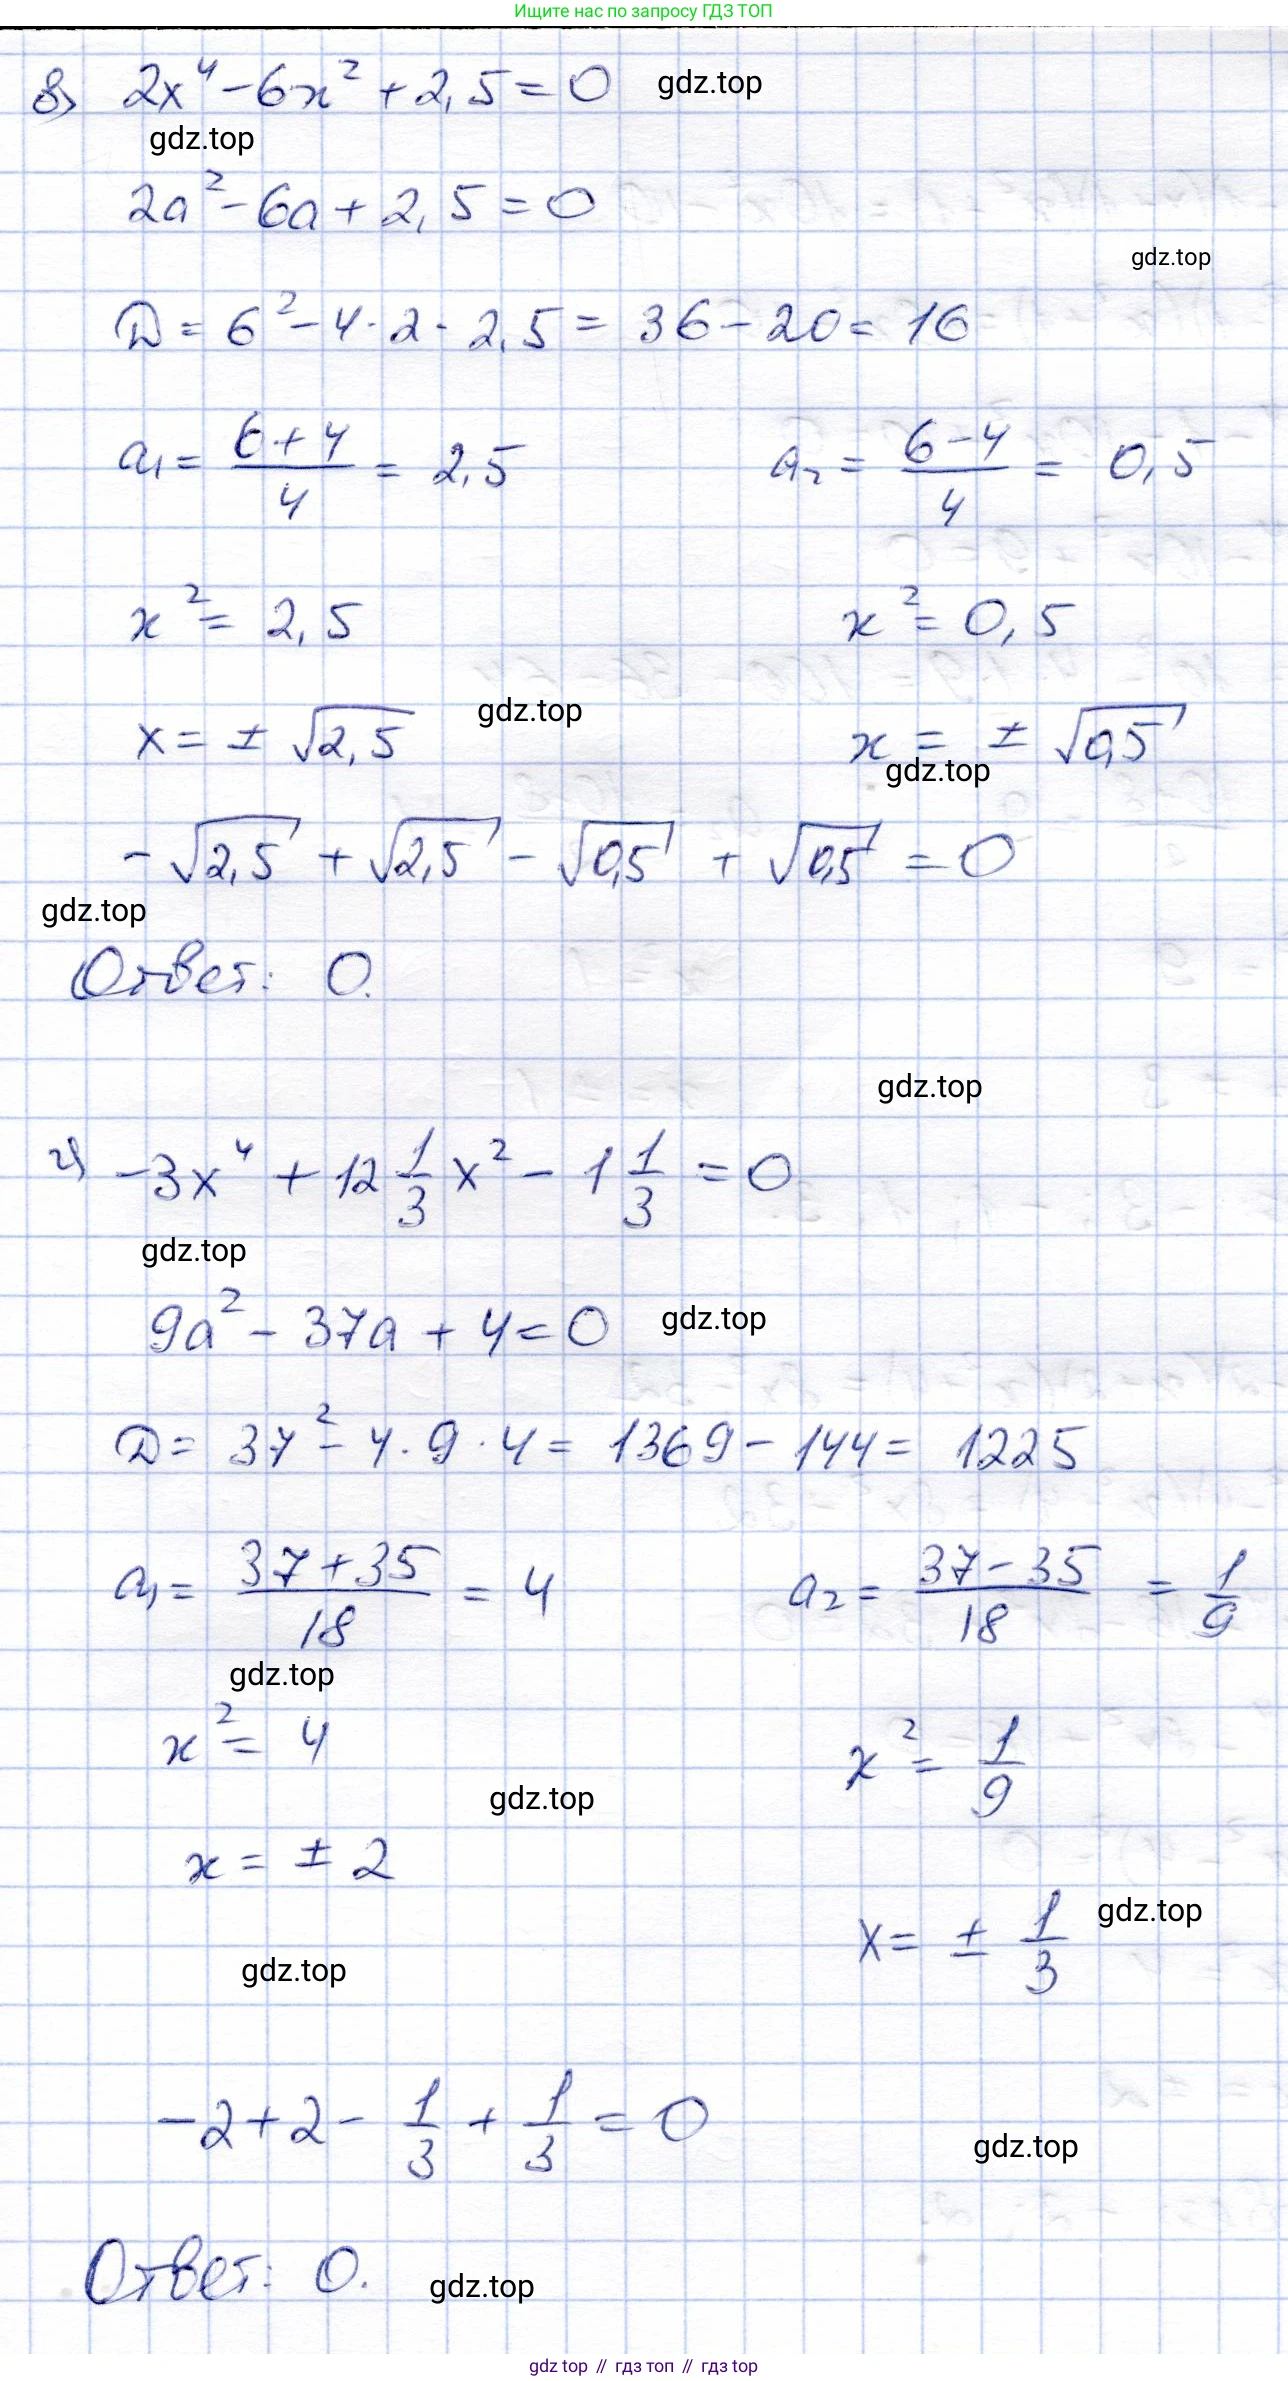 Ищите нас по запросу ГДЗ ТОП
в) 2x⁴ - 6x² + 2,5 = 0 gdz.top
gdz.top
2a² - 6a + 2,5 = 0
gdz.top
D = 6² - 4 · 2 · 2,5 = 36 - 20 = 16
a₁ = (6 + 4)/4 = 2,5 a₂ = (6 - 4)/4 = 0,5
x² = 2,5 x² = 0,5
x = ± √2,5 gdz.top x = ± √0,5
gdz.top
- √2,5 + √2,5 - √0,5 + √0,5 = 0
gdz.top
Ответ: 0.
gdz.top
г) -3x⁴ + 12 1/3 x² - 1 1/3 = 0
gdz.top
9a² - 37a + 4 = 0 gdz.top
D = 37² - 4 · 9 · 4 = 1369 - 144 = 1225
a₁ = (37 + 35)/18 = 4 a₂ = (37 - 35)/18 = 1/9
gdz.top
x² = 4 x² = 1/9
gdz.top
x = ± 2
x = ± 1/3 gdz.top
gdz.top
-2 + 2 - 1/3 + 1/3 = 0
gdz.top
Ответ: 0.
gdz.top
gdz top // гдз топ // гдз top